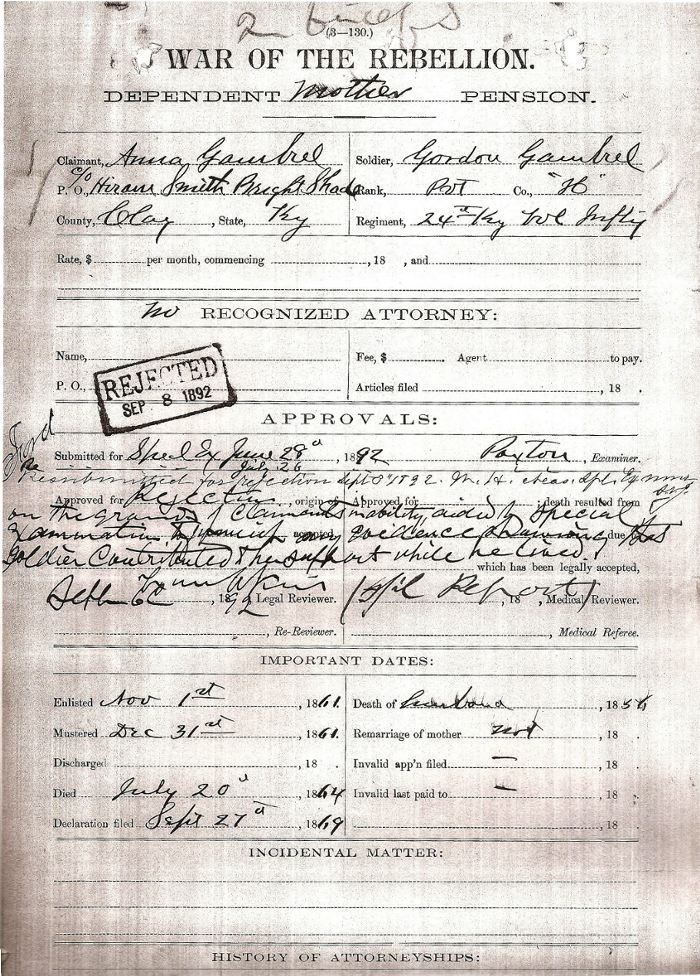 (3—130.)
WAR OF THE REBELLION.
DEPENDENT Mother PENSION.
Claimant, Anna Gambrel
Soldier, Gordon Gambrel
P. O., c/o Hiram Smith Bright Shade
Rank, Pvt Co., "H"
County, Clay, State, Ky
Regiment, 24th Ky Vol Inftry
Rate, $ per month, commencing , 18 , and
No RECOGNIZED ATTORNEY:
Name,
Fee, $ Agent to pay.
P. O.,
Articles filed , 18 .
REJECTED
SEP 8 1892
APPROVALS:
Submitted for Specl Ex June 28th, 1892 Payton, Examiner.
July 26
Resubmitted for rejection Sept 1892.
Approved for Rejection, origin of Approved for ; death resulted from
on the ground of claimant's inability, aided by Special
Examination, to furnish any evidence showing that
soldier contributed to her support while he lived.
which has been legally accepted,
1892 Legal Reviewer. Spl Report, 18 , Medical Reviewer.
, Re-Reviewer. , Medical Referee.
IMPORTANT DATES:
Enlisted Nov 1st, 1861.
Death of husband, 185
Mustered Dec 31st, 1861.
Remarriage of mother not, 18
Discharged , 18 .
Invalid app'n filed — , 18
Died July 20th, 1864
Invalid last paid to — , 18
Declaration filed Sept 27th, 1869
, 18
INCIDENTAL MATTER:
HISTORY OF ATTORNEYSHIPS: